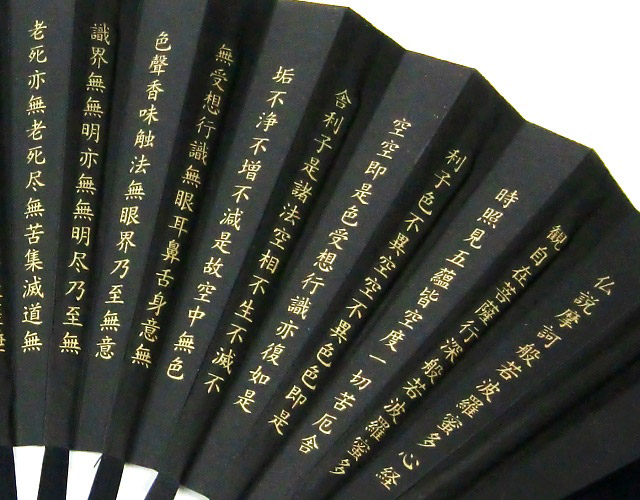 仏説摩訶般若波羅蜜多心経
観自在菩薩行深般若波羅蜜多
時照見五蘊皆空度一切苦厄舎
利子色不異空空不異色色即是
空空即是色受想行識亦復如是
舎利子是諸法空相不生不滅不
垢不浄不増不減是故空中無色
無受想行識無眼耳鼻舌身意無
色聲香味触法無眼界乃至無意
識界無無明亦無無明尽乃至無
老死亦無老死尽無苦集滅道無